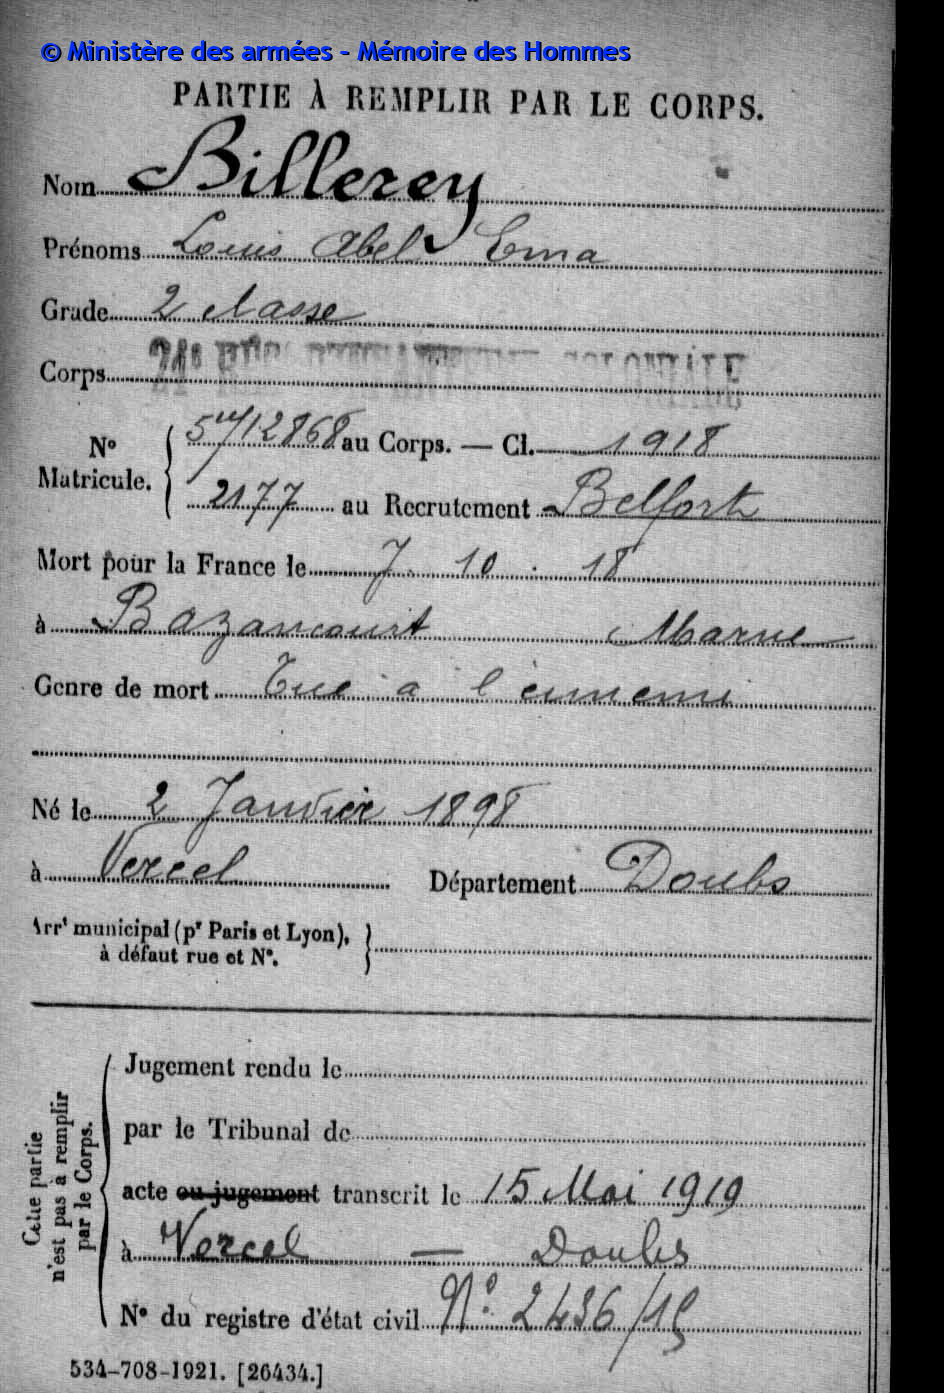 © Ministère des armées - Mémoire des Hommes
PARTIE À REMPLIR PAR LE CORPS.
Nom Billerey
Prénoms Louis Abel Ema
Grade 2 classe
Corps 21e COLONIALE
No Matricule. { 12868 au Corps. — Cl. 1918
2177 au Recrutement Belfort
Mort pour la France le 7. 10. 18
à Bazancourt Marne
Genre de mort Tué a l'ennemi
Né le 2 Janvier 1898
à Vercel Département Doubs
Arrt municipal (pr Paris et Lyon), }
à défaut rue et No.
Cette partie n'est pas à remplir par le Corps. {
Jugement rendu le
par le Tribunal de
acte ou jugement transcrit le 15 Mai 1919
à Vercel — Doubs
No du registre d'état civil No 2436/19
534-708-1921. [26434.]